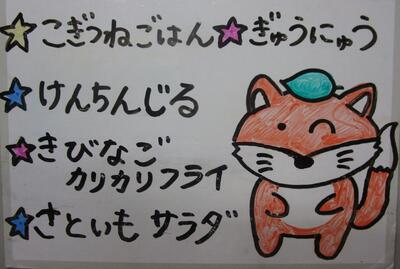 こぎつねごはん ぎゅうにゅう
けんちんじる
きびなご
カリカリフライ
さといも サラダ